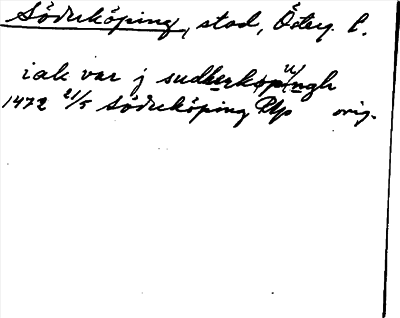 Söderköping, stad, Österg. l.
iak var j sudherköpungh
1472 21/5 Söderköping RAp orig.